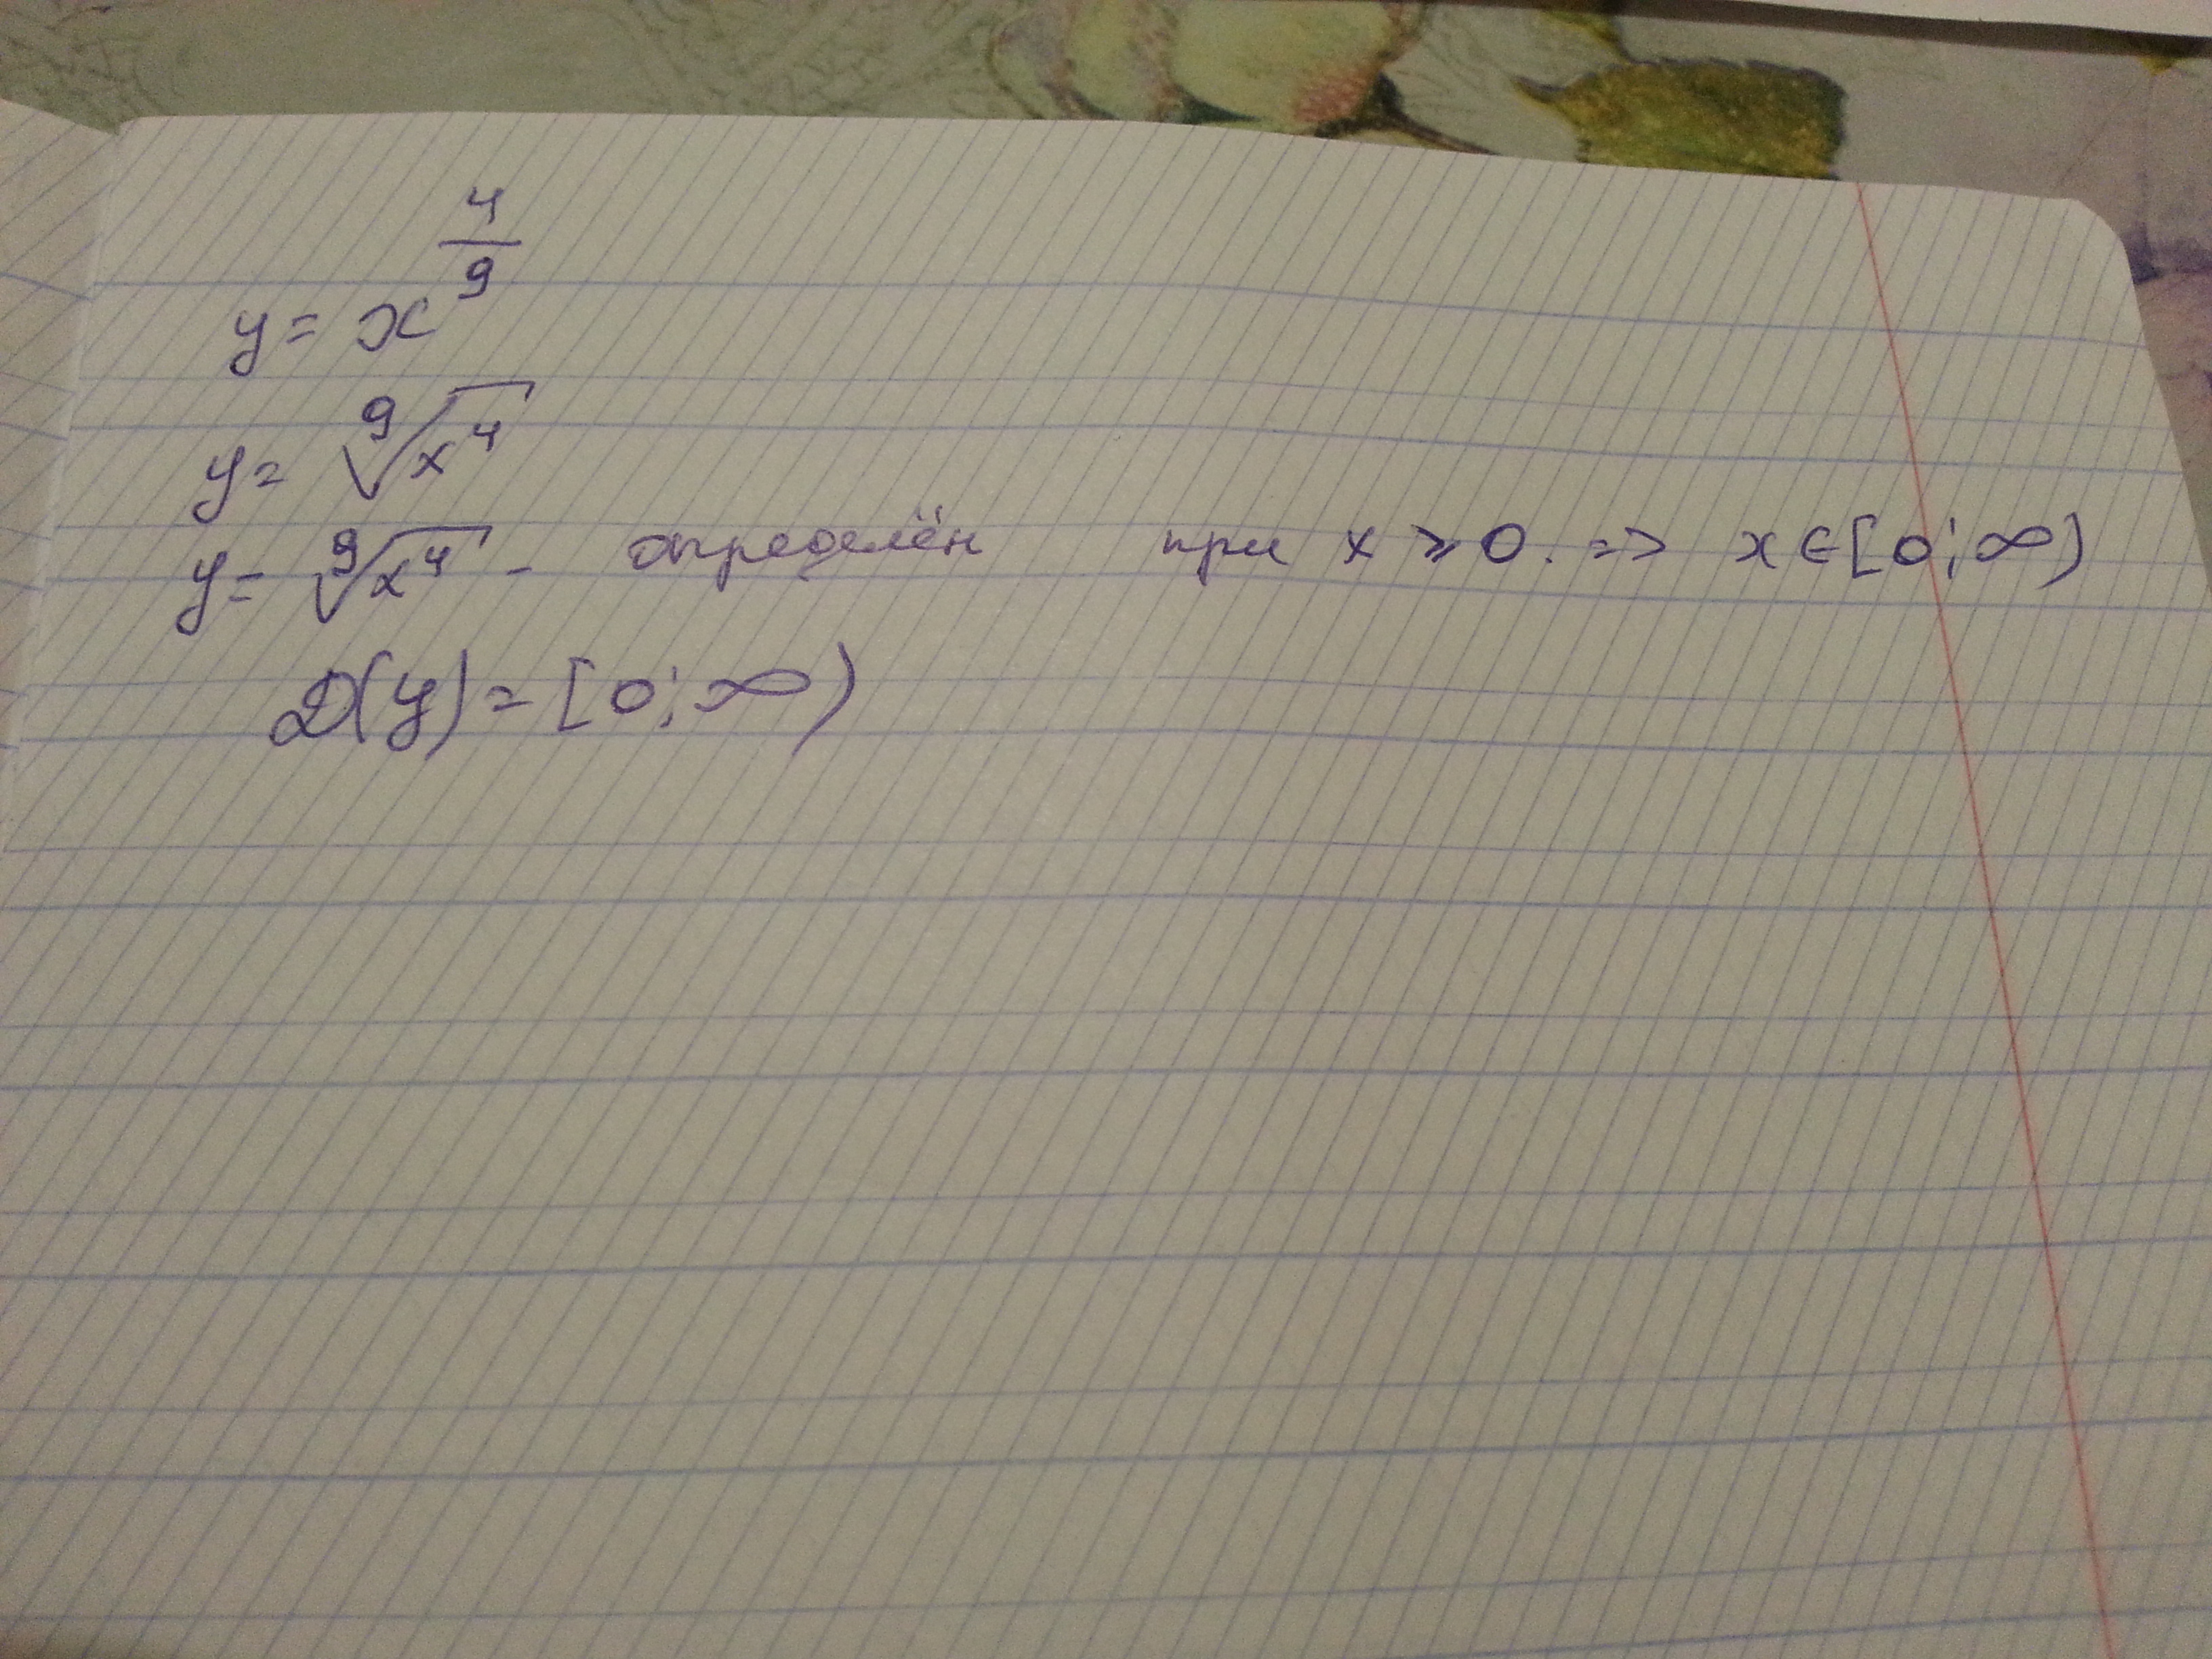 y = x^(4/9)
y = ⁹√x⁴
y = ⁹√x⁴ - определён при x ⩾ 0. => x ∈ [0; ∞)
D(y) = [0; ∞)